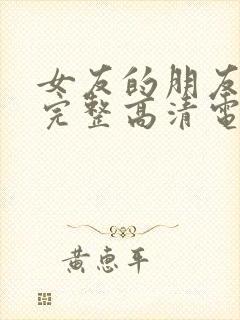 女友的朋友
完整高清電
黃惠平